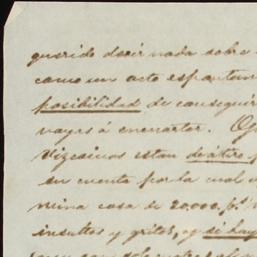 querido decir nada sobre
como un acto espontan
posibilidad de conseguir
vayas á encartar. Op
Vizcainos estan de
en cuenta por la cual
mina cosa de 20,000 p.s
insultos y gritos, y si hay